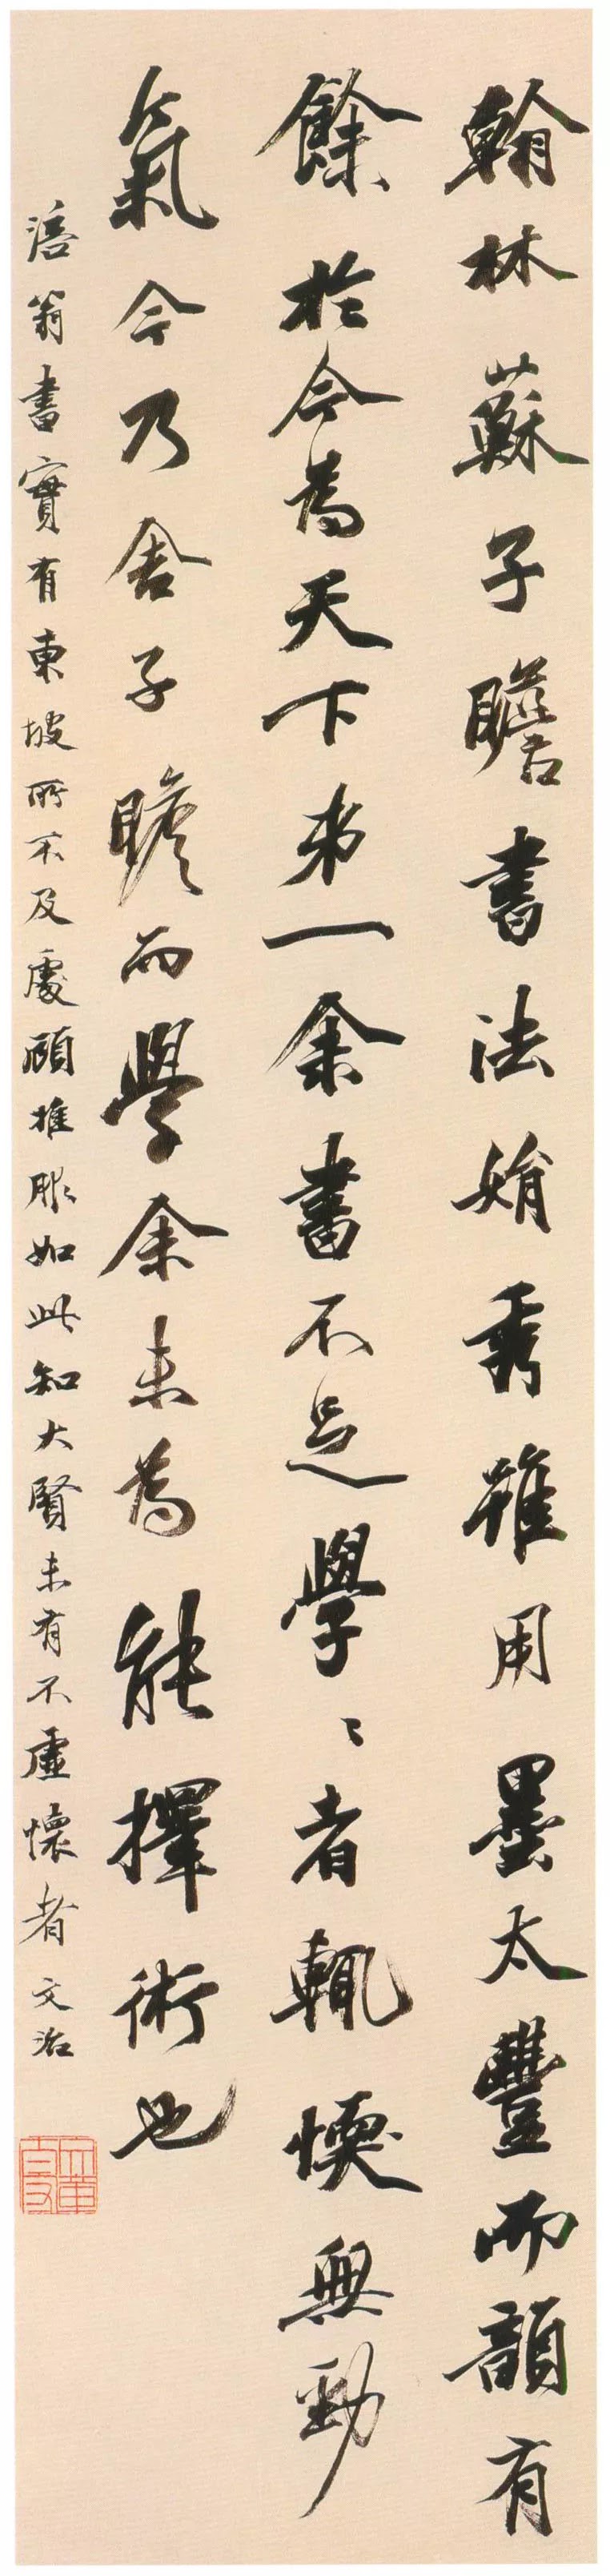 翰林蘇子瞻書法娟秀雖用墨太豐而韻有
餘於今為天下弟一余書不足學〻者輒愞無勁
氣今乃舍子瞻而學余未為能擇術也
涪翁書實有東坡所不及處顧推服如此知大賢未有不虛懷者 文治